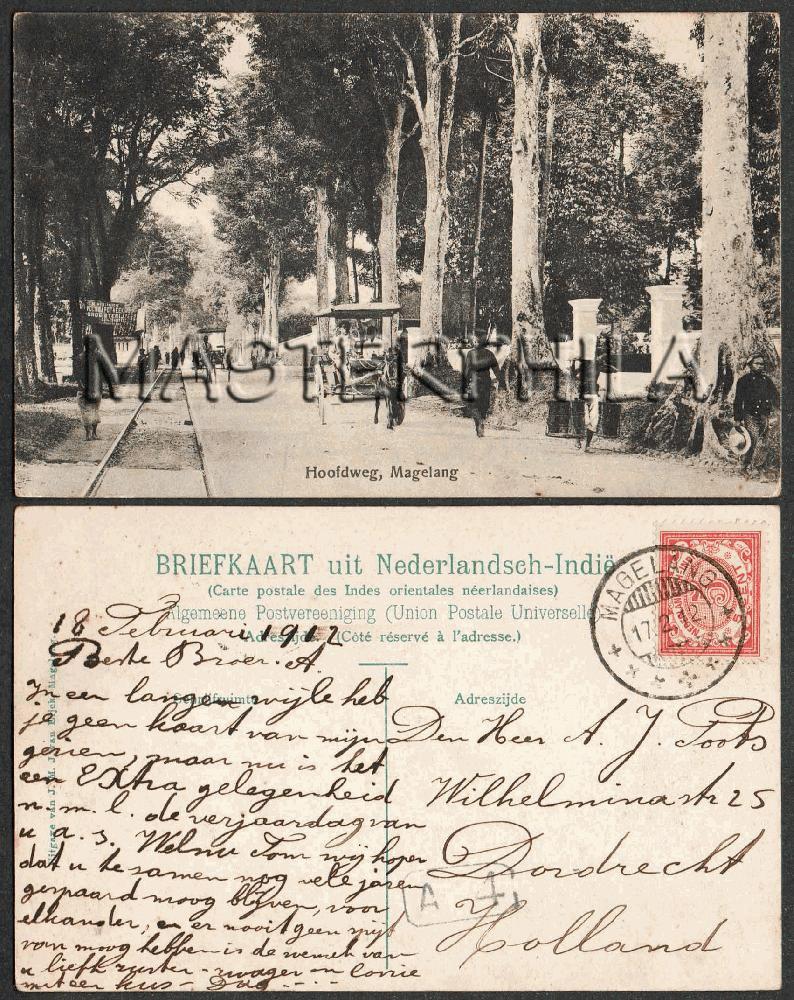 MASTERPHILA
Hoofdweg, Magelang
BRIEFKAART uit Nederlandsch-Indië
(Carte postale des Indes orientales néerlandaises)
Algemeene Postvereeniging (Union Postale Universelle)
Adreszijde. (Côté réservé à l'adresse.)
MAGELANG
17.2.12
CENT
18 Februari 1912
Beste Broer. A.
In een langen wijle heb
je geen kaart van mijn
gezien, maar nu is het
een Extra gelegenheid
n.m.l. de verjaardag van
u a.s. Welnu Tom wij hopen
dat u te samen nog vele jaren
gespaard moog blijven, voor
elkander, en er nooit geen spijt
van moog hebben is de wensch van
u liefh zuster - zwager en
met een kus - Dag
Schrijfruimte
Adreszijde
Den Heer A. J. Poots
Wilhelminastr 25
Dordrecht
Holland
A
Uitgave van J. M.